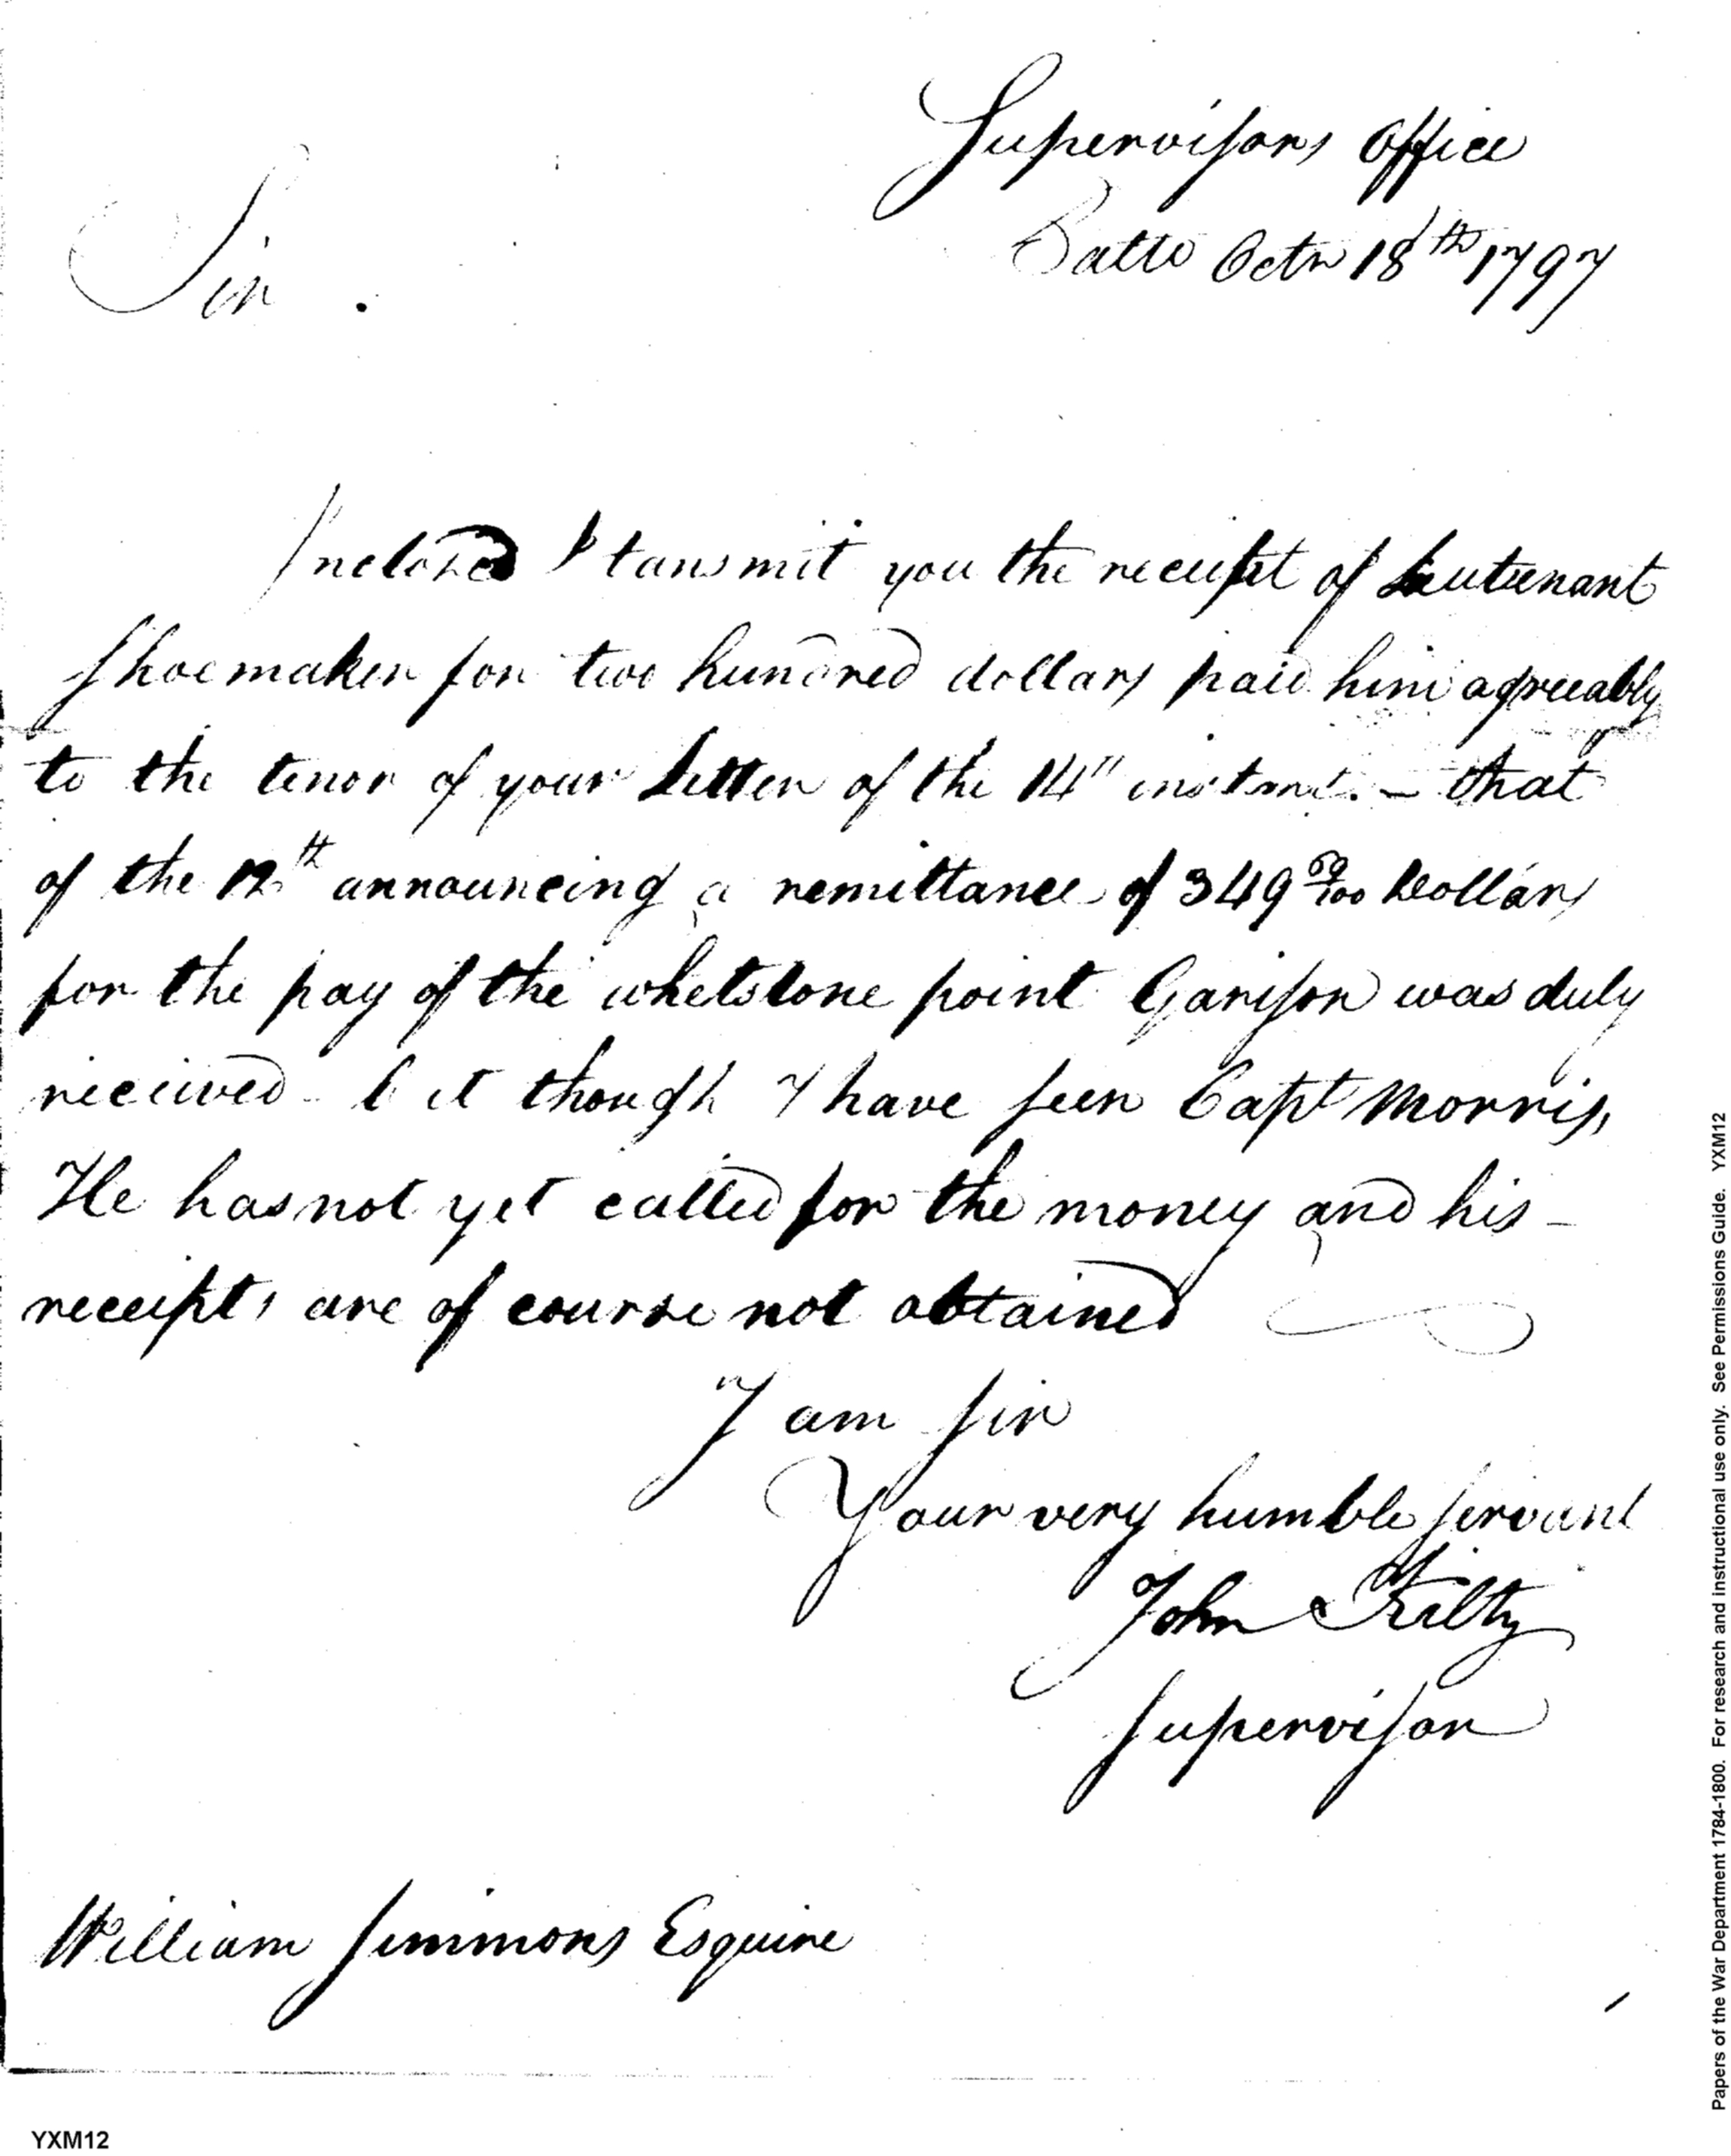 Supervisors Office
Balto Octr 18th 1797
Sir .
Inclosed I tansmit you the receipt of Leutenant
Shoemaker for two hundred dollars paid him agreeably
to the tenor of your Letter of the 14th instant. – that
of the 12th announcing a remittance of 349 /100 Dollars
for the pay of the whetstone point Garison was duly
received - but though I have seen Capt Morris,
He has not yet called for the money and his –
receipts are of course not obtained
I am Sir
Your very humble servant
John Kilty
Supervisor
William Simmons Esquire
Papers of the War Department 1784-1800. For research and instructional use only. See Permissions Guide. YXM12
YXM12